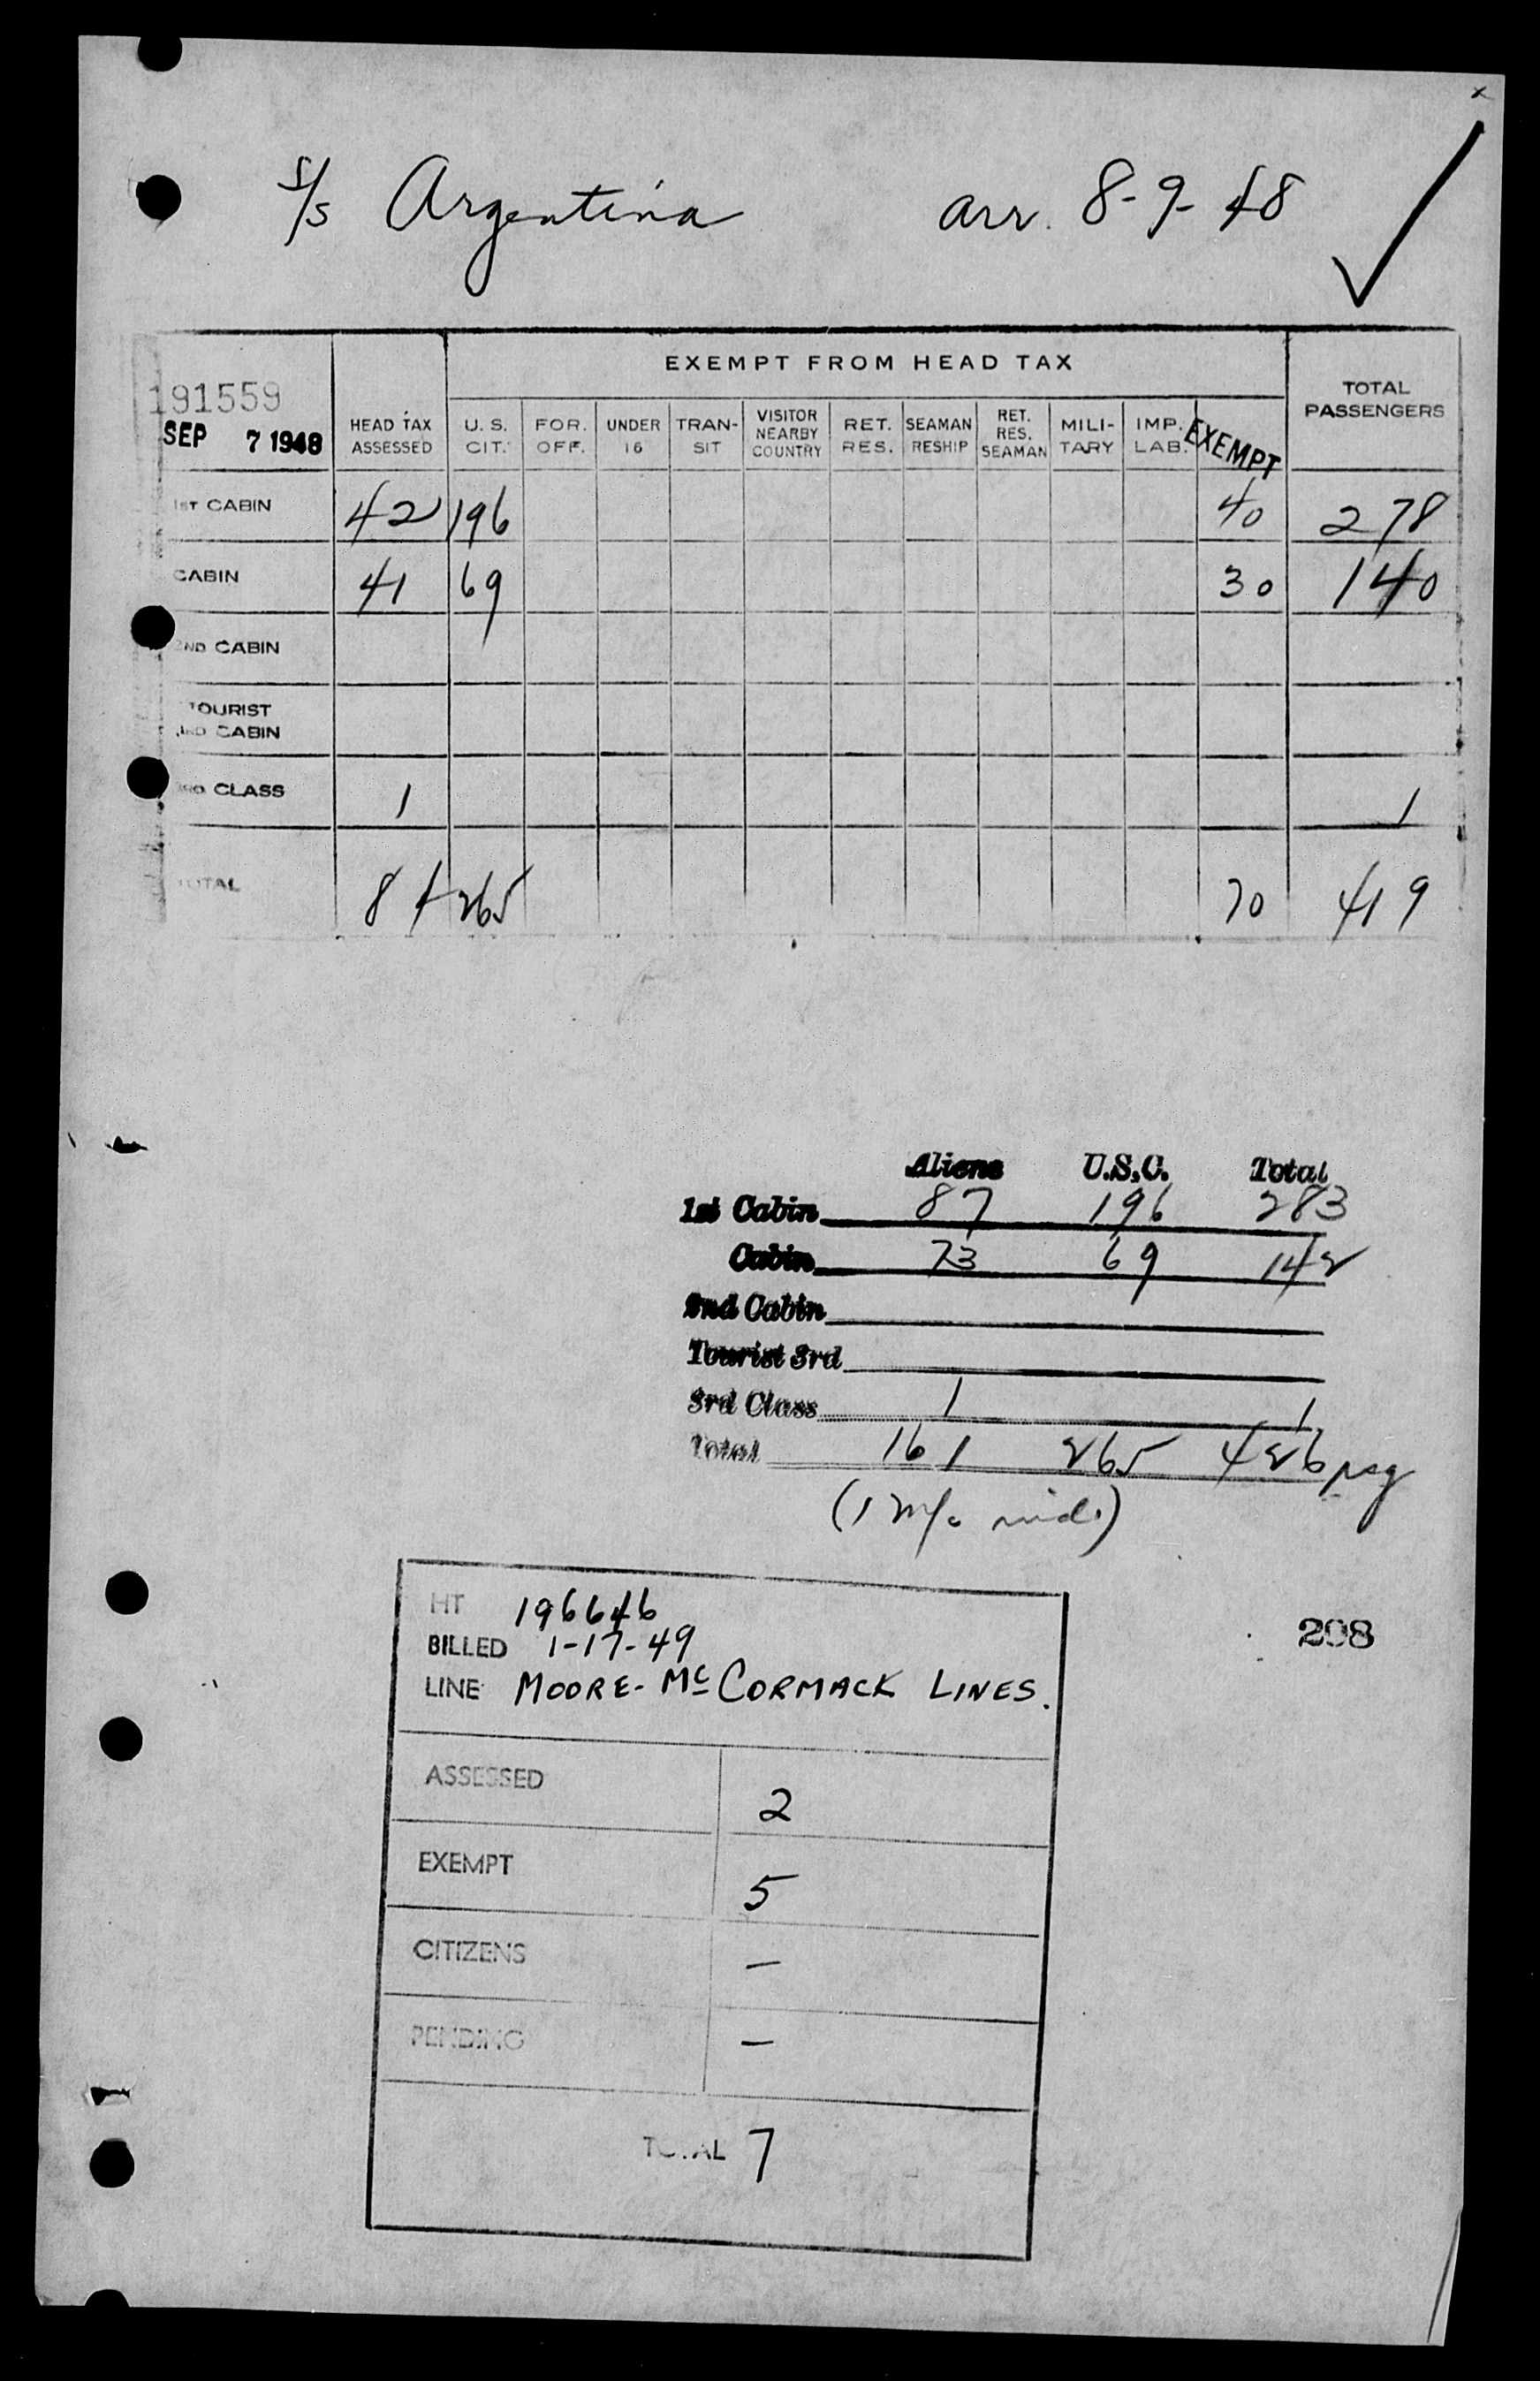 x
S/S Argentina arr. 8-9-48
EXEMPT FROM HEAD TAX
191559
SEP 7 1948
HEAD TAX ASSESSED
U. S. CIT.
FOR. OFF.
UNDER 16
TRAN-SIT
VISITOR NEARBY COUNTRY
RET. RES.
SEAMAN RESHIP
RET. RES. SEAMAN
MILI-TARY
IMP. LAB.
EXEMPT
TOTAL PASSENGERS
1ST CABIN 42 196 40 278
CABIN 41 69 30 140
2ND CABIN
TOURIST
3RD CABIN
3RD CLASS 1 1
TOTAL 84 265 70 419
Aliens U.S.C. Total
1st Cabin 87 196 283
Cabin 73 69 142
2nd Cabin
Tourist 3rd
3rd Class 1 1
Total 161 265 426 psg
(1 m/c
HT 196646
BILLED 1-17-49
LINE MOORE-McCORMACK LINES.
298
ASSESSED 2
EXEMPT 5
CITIZENS —
PENDING —
TOTAL 7